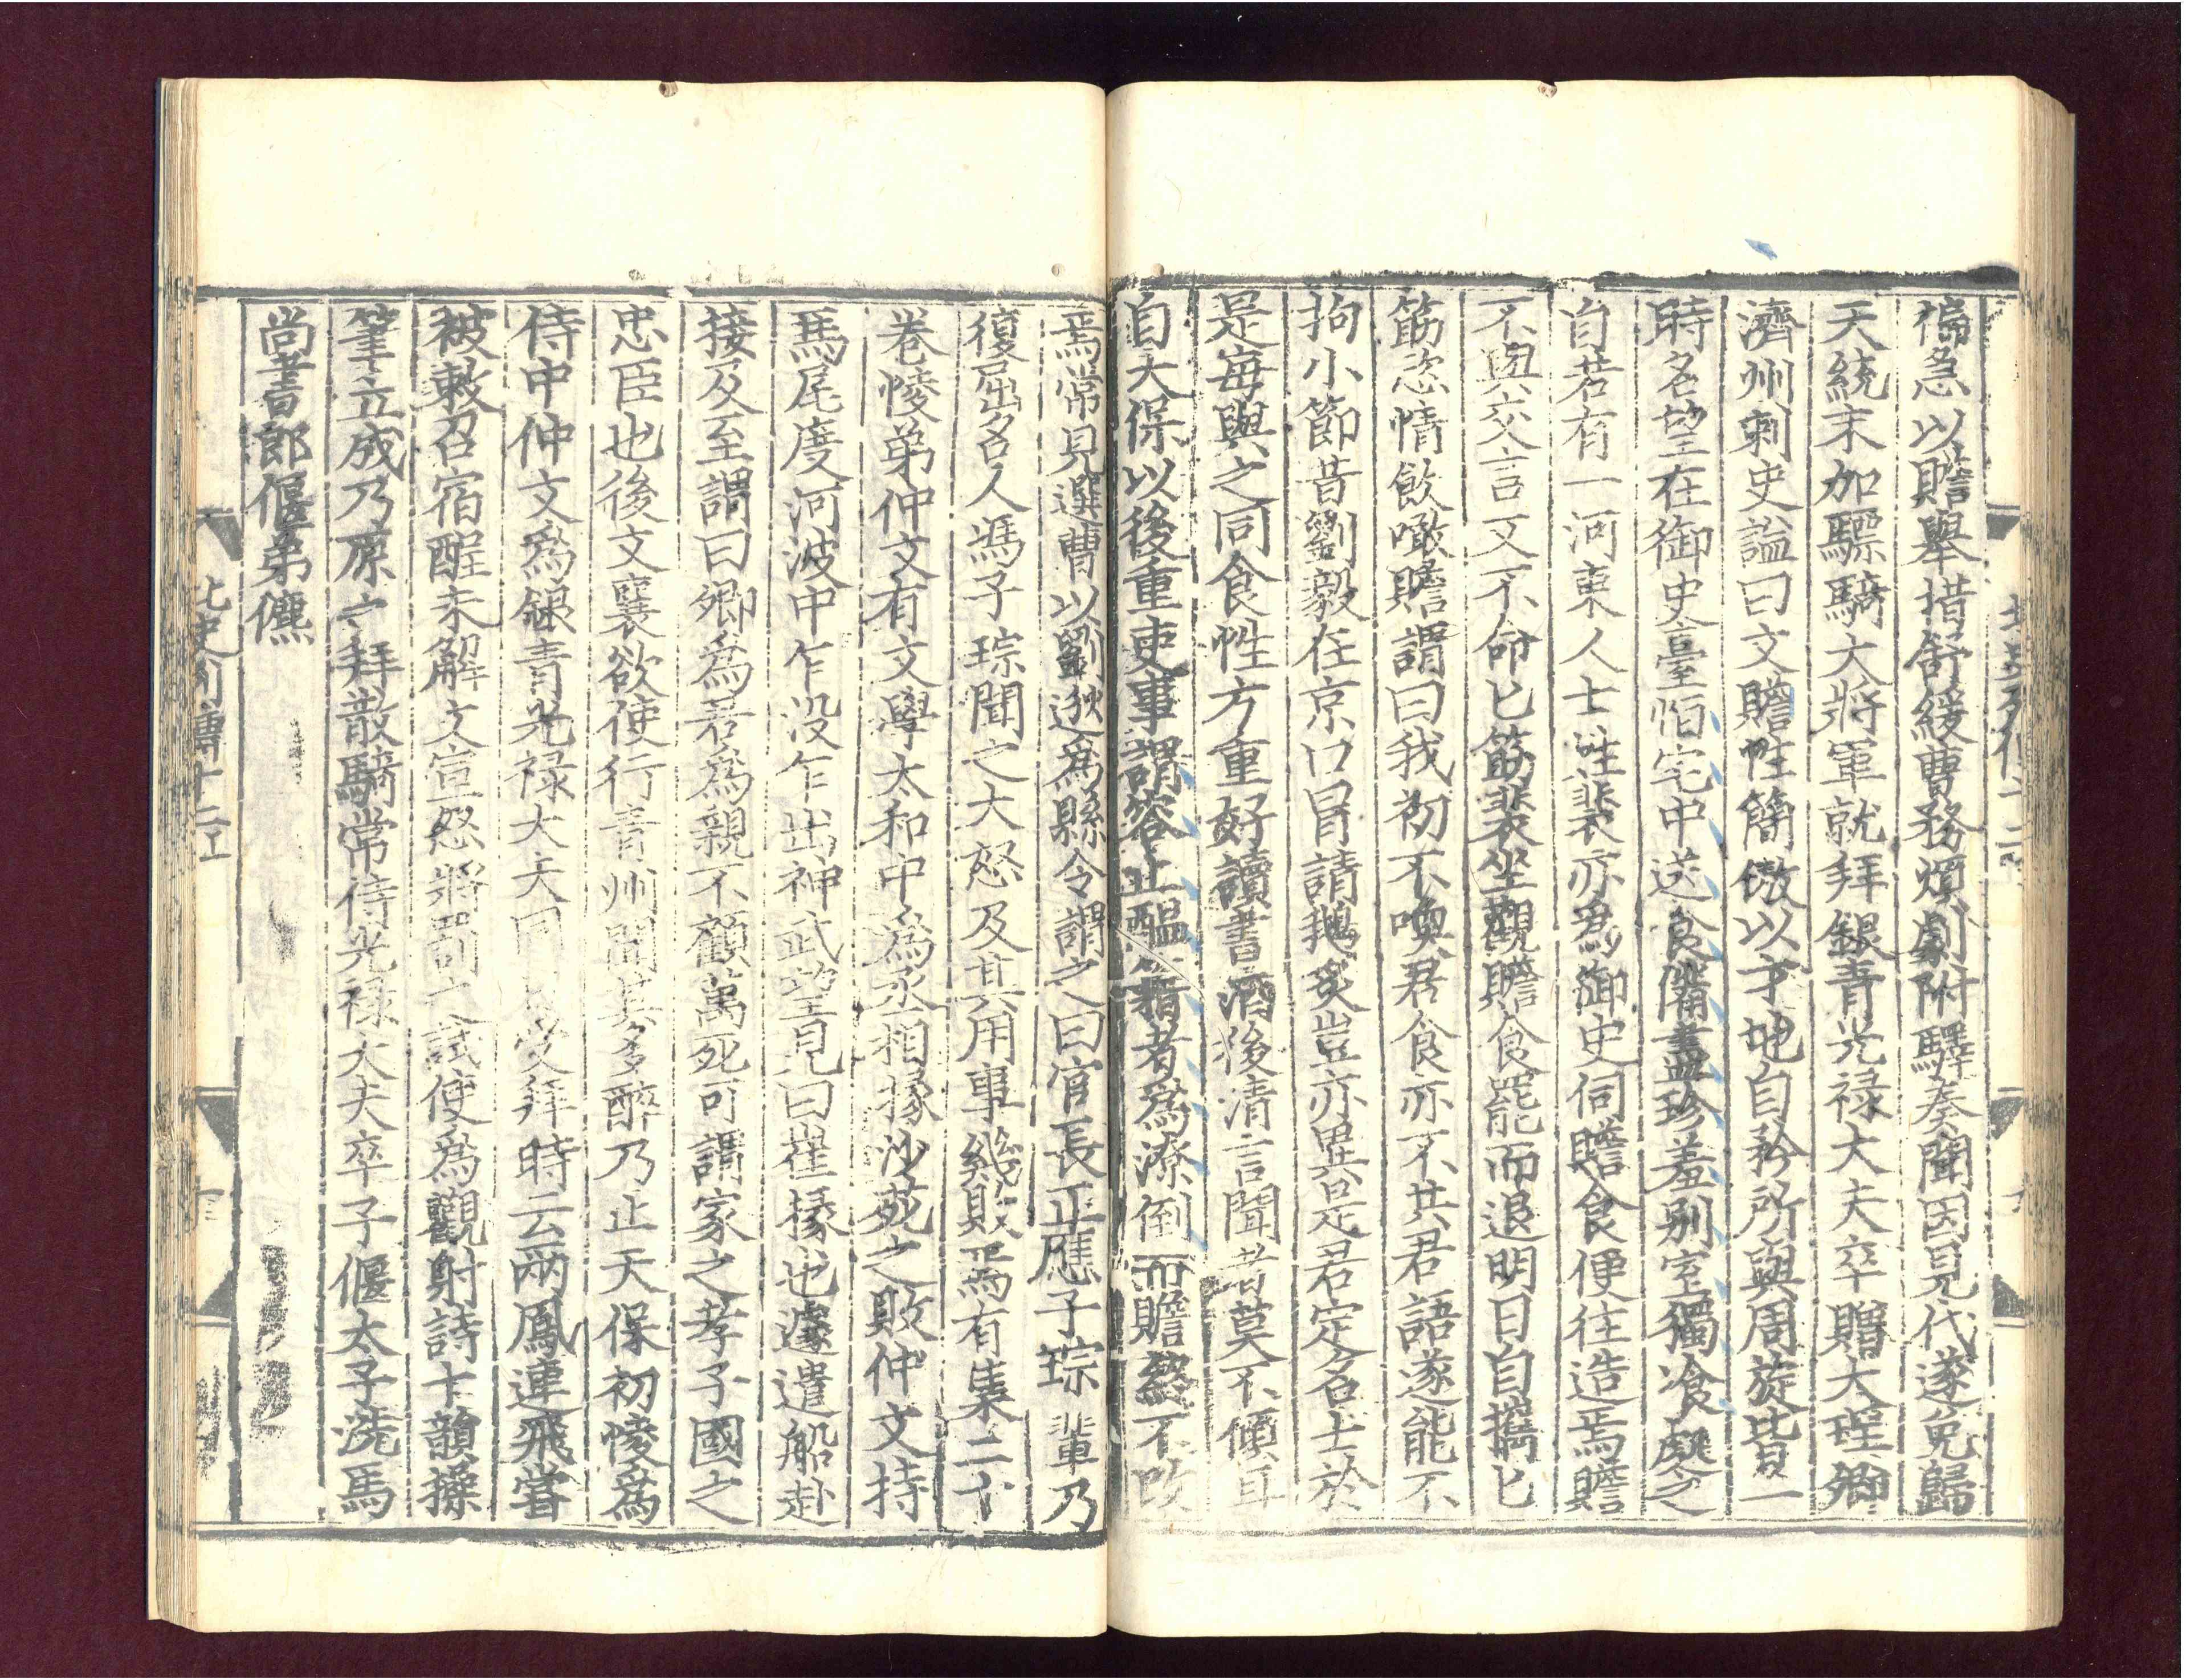 褊急以贍舉措舒緩曹務煩劇附驛奏聞因見代遂免歸
天統末加驃騎大將軍就拜銀青光禄大夫卒贈大理卿
濟州刺史謚曰文贍性簡傲以才地自矜所與周旋皆一
時名望在御史臺恒宅中送食備盡珍羞别室獨飡處之
自若有一河東人士姓裴亦為御史伺贍食便往造焉贍
不與交言又不命匕筯裴坐觀贍食罷而退明日自攜匕
筯恣情飲噉贍謂曰我初不喚君食亦不共君語遂能不
拘小節昔劉毅在京口冒請鵝炙豈亦異是君定名士於
是每與之同食性方重好讀書酒後清言聞者莫不傾耳
自天保以後重吏事謂容止醖藉者為潦倒而贍終不改
焉常見選曹以劉逖為縣令謂之曰官長正應子琮輩乃
復屈名人馮子琮聞之大怒及其用事幾敗焉有集二十
卷㥄弟仲文有文學太和中為丞相掾沙苑之敗仲文持
馬尾度河波中乍没乍出神武望見曰崔掾也遽遣船赴
接及至謂曰卿為君為親不顧萬死可謂家之孝子國之
忠臣也後文襄欲使行青州聞其多醉乃止天保初㥄為
侍中仲文為銀青光禄大夫同日受拜時云兩鳳連飛嘗
被敕召宿酲未解文宣怒將罰之試使為觀射詩十韻操
筆立成乃原之拜散騎常侍光禄大夫卒子偃太子洗馬
尚書郎偃弟儦
北史列傳十二